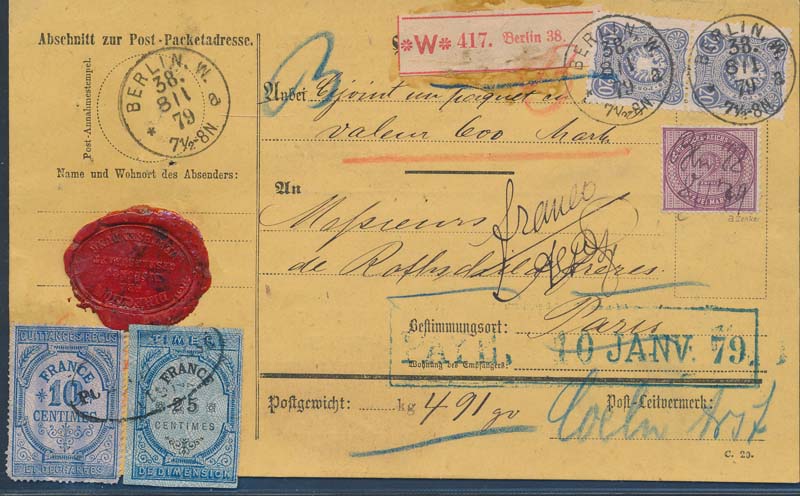 Abschnitt zur Post-Packetadresse.
*W* 417. Berlin 38.
BERLIN. W.
38.
8 1 1
79
* 7½-8N a
Post-Annahmestempel.
Name und Wohnort des Absenders:
BERLIN. W.
38.
79
BERLIN. W.
38.
8 1 1
79
* 7½-8N a
20
20
Anbei Cijoint un paquet
valeur 600 Mark
2
ZWEI MARK
An
Messieurs
franco
de Rothschild frères.
Bestimmungsort: Paris
10 JANV. 79.
Wohnung des Empfängers:
Postgewicht: kg 491 gr
Post-Leitvermerk:
Coeln
C. 29.
QUITTANCES REÇUS
FRANCE
*10
CENTIMES
ET DECHARGES
TIMBRE
FRANCE
25
CENTIMES
DE DIMENSION